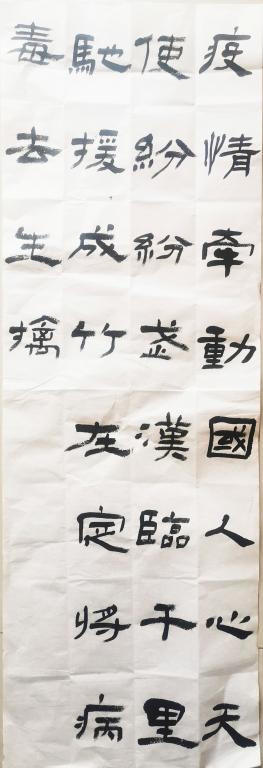 疫情牽動國人心天
使紛紛武漢臨千里
馳援成竹在定將病
毒去生擒